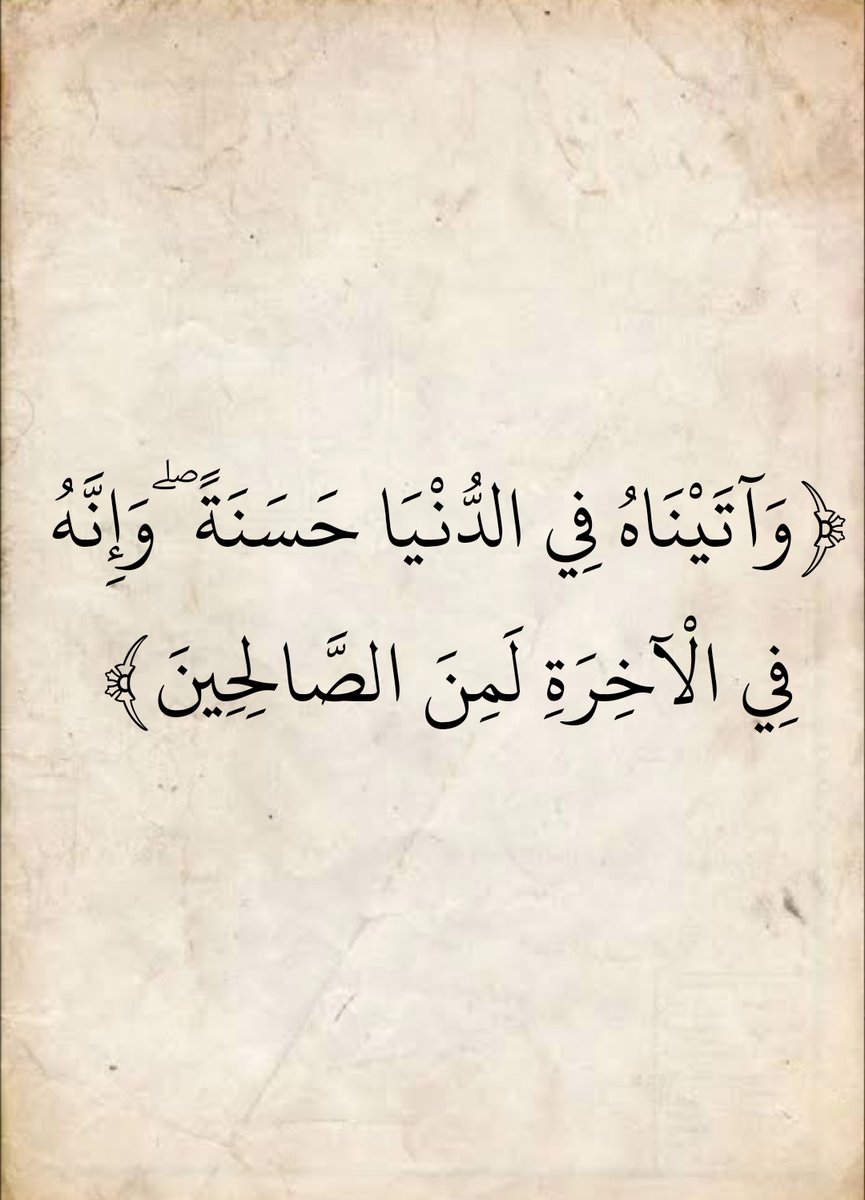 ﴿وَآتَيْنَاهُ فِي الدُّنْيَا حَسَنَةً ۖ وَإِنَّهُ
فِي الْآخِرَةِ لَمِنَ الصَّالِحِينَ﴾